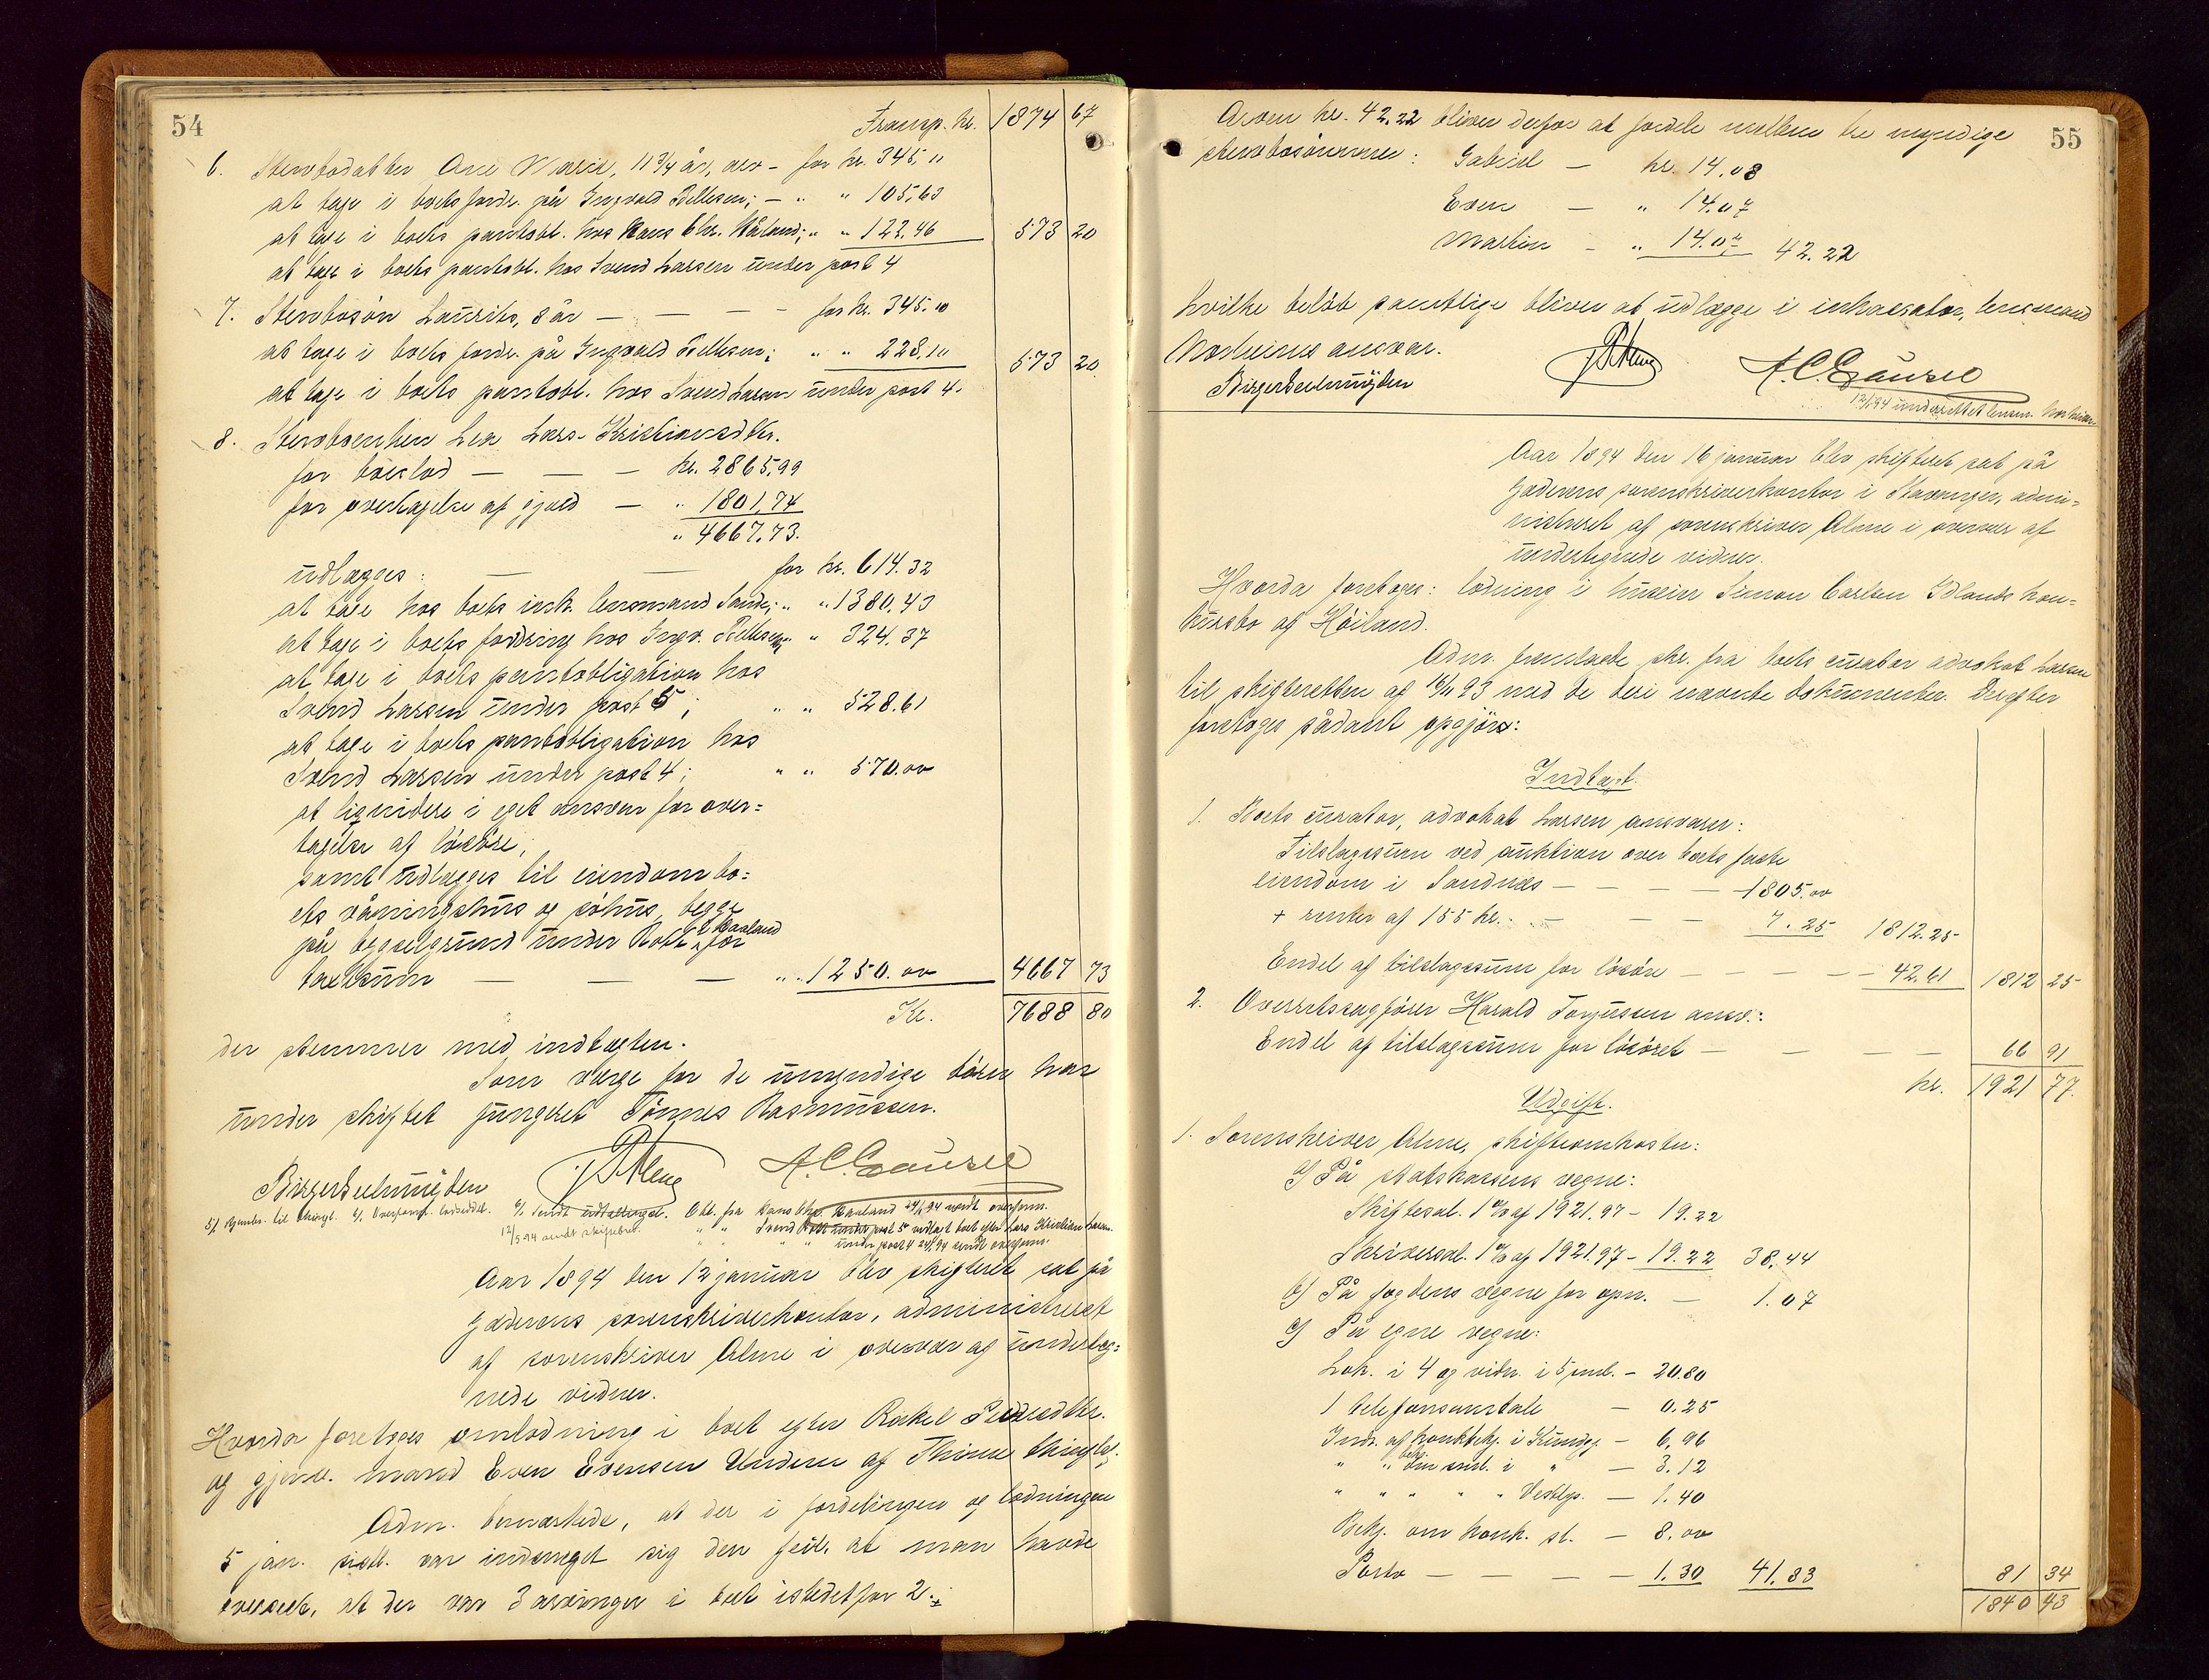 54
Transp. kr. 1874 67
6. Stervbodatter Ane Marie, 11 3/4 år, arv – for kr. 345,"
at tage i boets fordr. på Ingvald Pellesen; – " " 105,63
at tage i boets pantobl. hos Hans Chr. Håland; " " 122.46 573 20
at tage i boets pantobl. hos Svend Larsen under post 4
7. Stervbosøn Laurits, 8 år – – – – for kr. 345,"
at tage i boets fordr. på Ingvald Pellesen; " " 228."
573 20
at tage i boets pantobl. hos Svend Larsen under post 4.
8. Stervboenken Lea Lars-Kristiansdtr.
for boeslod – – – kr. 2865,99
for overtagelse af gjæld – " 1801,74
" 4667,73.
udlægges: – – for kr. 614.32
at tage hos boets ink. lensmand Sande; " " 1380,43
at tage i boets fordring hos Ingv. Pellesen; " 324.37
at tage i boets pantobligation hos
Svend Larsen under post 5; " " 528.61
at tage i boets pantobligation hos
Svend Larsen under post 4; " " 570.00
at liqvidere i eget ansvar for over=
tagelse af løsøre,
samt udlægges til eiendom bo=
ets våningshus og søhus, begge
på bygselgrund under Rott i Haaland for
taxtsum – – – " " 1250.00 4667 73
Kr. 7688 80
der stemmer med indtægten.
Som værge for de umyndige børn har
under skiftet fungeret Tønnes Rasmussen.
Birger Seehmüyden A. C. Gausel
Aar 1894 den 12 januar blev skifteret sat på
Jæderens sorenskriverkontor, administreret
af sorenskriver Alme i overvær af underteg=
nede vidner.
Hvorda foretoges omlodning i boet efter Rakel Pedersdtr.
og gjenl. mand Even Evensen Underen af Thime thinglag.
Adm. bemærkede, at der i fordelingen og lodningen
5 jan. sidstl. var indsneget sig den feil, at man havde
overseet, at der var 3 arvinger i boet istedetfor 2.;
55
Arven kr. 42.22 bliver derfor at fordele mellem tre myndige
stervbosønner: Gabriel – kr. 14.08
Even – " 14.07
Martin – " 14.07 42.22
hvilke beløb samtlige bliver at udlægge i inkassator, lensmand
Norheims ansvar.
Birger Seehmüyden A. C. Gausel
12/1 94 underrettet lensm. Norheim
Aar 1894 den 16 januar blev skifteret sat på
Jæderens sorenskriverkontor i Stavanger, admi=
nistreret af sorenskriver Alme i overvær af
undertegnede vidner.
Hvorda foretoges: lodning i huseier Simon Carlsen Idlands kon=
kursbo af Høiland.
Adm. fremlagde skr. fra boets curator advokat Larsen
til skifteretten af 14/11 93 med de deri nævnte dokumenter. Derefter
foretoges sådant opgjør:
Indtægt.
1. Boets curator, advokat Larsen ansvarer:
Tilslagssum ved auktion over boets faste
eiendom i Sandnæs – – – – 1805.00
+ renter af 155 kr. – – – 7.25 1812.25
Endel af tilslagssum for løsøre – – – – 42.61 1812 25
2. Overretssagfører Harald Torjusen ansv.:
Endel af tilslagssum for løsøret – – – – 66 91
kr. 1921 77.
Udgift.
1. Sorenskriver Alme, skifteomkostn:
a) På statskassens vegne:
Skiftesal. 1 % af 1921.97 – 19.22
Skriversal. 1 % af 1921.97 – 19.22 38.44
b) På fogdens vegne for opn. – 1.07
c) På egne vegne:
Lok. i 4 og vidn. i 5 saml. – 20.80
1 telefonsamtale – 0.25
Indr. af konkbekj. i Kundgj. – 6,96
" " bekj. om saml. i " – 3.12
" " " " " Vestlgs. – 1.40
Bekj. om konk. sl. – 8.00
Porto – – – – 1.30 41.83 81 34
1840 43